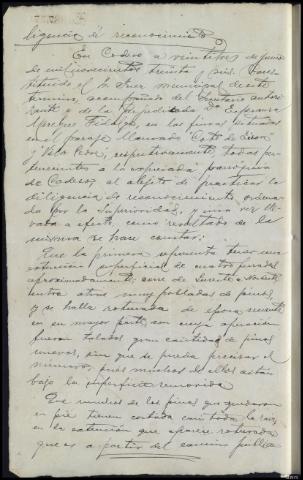 ligencia de reconocimiento
En Codeso a veintitres de junio
de mil novecientos treinta y seis. Cons-
tituido el Sr Juez municipal de este
termino, acompañado del Secretario autori-
zante y de la perjudicada Dª Esperanza
Sanchez Fidalgo, en las fincas situadas
en el paraje llamado de
y respectivamente, todas per-
tenecientes a la parroquia
de Codeso, al objeto de practicar la
diligencia de reconocimiento, ordena-
da por la Superioridad, y una vez lle-
vada a efecto, como resultado de la
misma se hace constar:
Que la primera representa tener una
extension superficial de
aproximadamente, once de
entre otros muy pobladas de pinos,
y se halla roturada de epoca reciente
en su mayor parte, en cuya operacion
fueron talados gran cantidad de pinos
nuevos, sin que se pueda precisar el
numero, pues muchos de ellos estan
bajo la superficie removida
De muchos de los pinos que quedaron
en pie tienen cortada casi toda la raiz,
en la extension que aparece roturada
que es a partir del camino publico